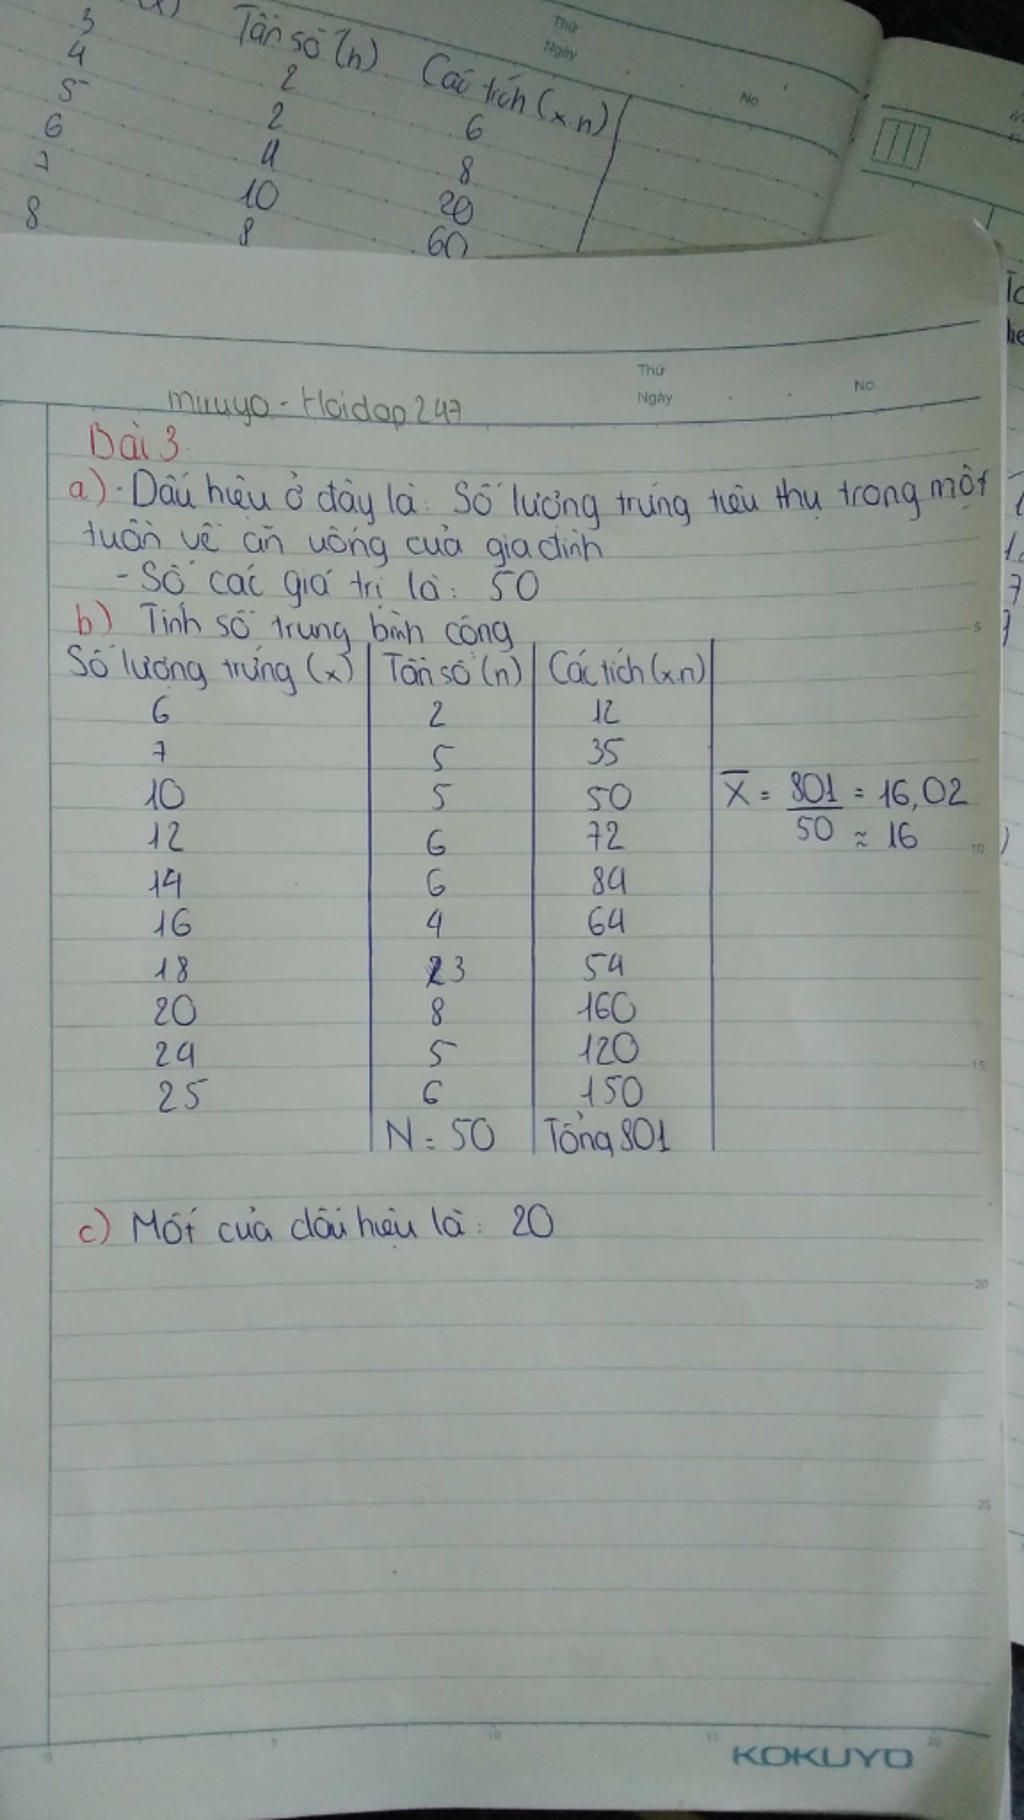 Tần số (n) Các tích (x.n)
3 2 6
4 2 8
5 4 20
6 10 60
7 8
8
Thứ
Ngày
No.
Thứ
Ngày
No.
miuyo - Hoidap247
Bài 3:
a) - Dấu hiệu ở đây là: Số lượng trứng tiêu thụ trong một
tuần về ăn uống của gia đình
- Số các giá trị là: 50
b) Tính số trung bình cộng
Số lượng trứng (x) Tần số (n) Các tích (x.n)
6 2 12
7 5 35
10 5 50
12 6 72
14 6 84
16 4 64
18 3 54
20 8 160
24 5 120
25 6 150
N = 50 Tổng 801
X = 801 = 16,02
50 ≈ 16
c) Mốt của dấu hiệu là: 20
5
10
15
20
25
0 5 10 15 20
KOKUYO